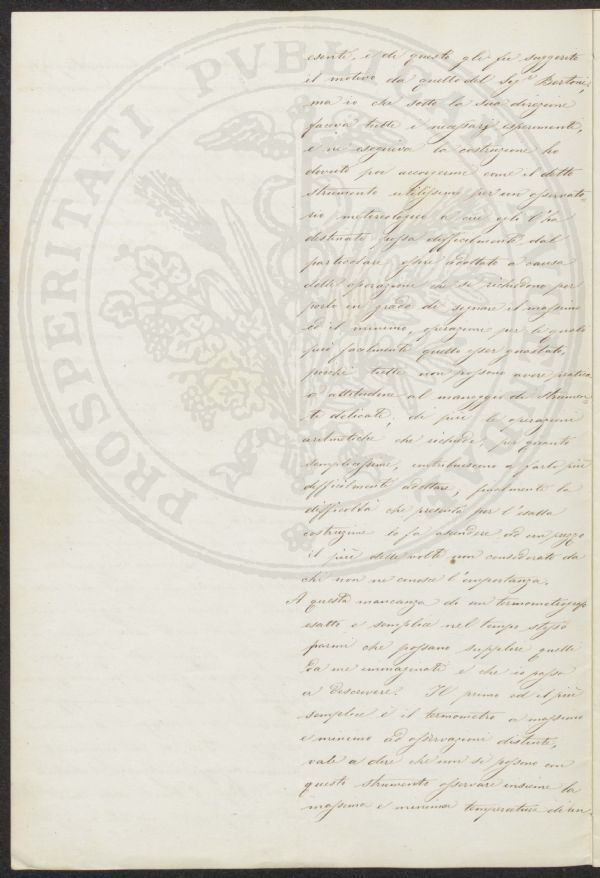 esenti, e di questo gli fu suggerito
il motivo da quello del Sig.r Bertoni;
ma io che sotto la sua direzione
faceva tutti i necessarj esperimenti,
e ne eseguiva la costruzione ho
dovuto poi accorgermi come il detto
strumento utilissimo per un osservato-
rio metereologico a cui egli l'ha
destinato, possa difficilmente dal
particolare essere adottato a causa
delle operazioni che si richiedono per
porlo in grado di segnare il massimo
ed il minimo, operazioni per le quali
può facilmente questo esser guastato,
perchè tutti non possono avere pratica
o attitudine al maneggio di strumen
ti delicati; di più le operazioni
aritmetiche che richiede, per quanto
semplicissime, contribuiscono a farlo più
difficilmente adottare, finalmente la
difficoltà che presenta per l'esatta
costruzione lo fa ascendere ad un prezzo
il più delle volte non considerato da
chi non ne conosce l'importanza.
A questa mancanza di un termometrografo
esatto e semplice nel tempo stesso
parmi che possano supplire quelli
da me immaginati e che io passo
a descrivere. Il primo ed il più
semplice è il termometro a massimo
e minimo ad osservazioni distinte,
vale a dire che non si possono con
questo strumento osservare insieme la
massima e minima temperatura di un
PROSPERITATI PVBLICAE